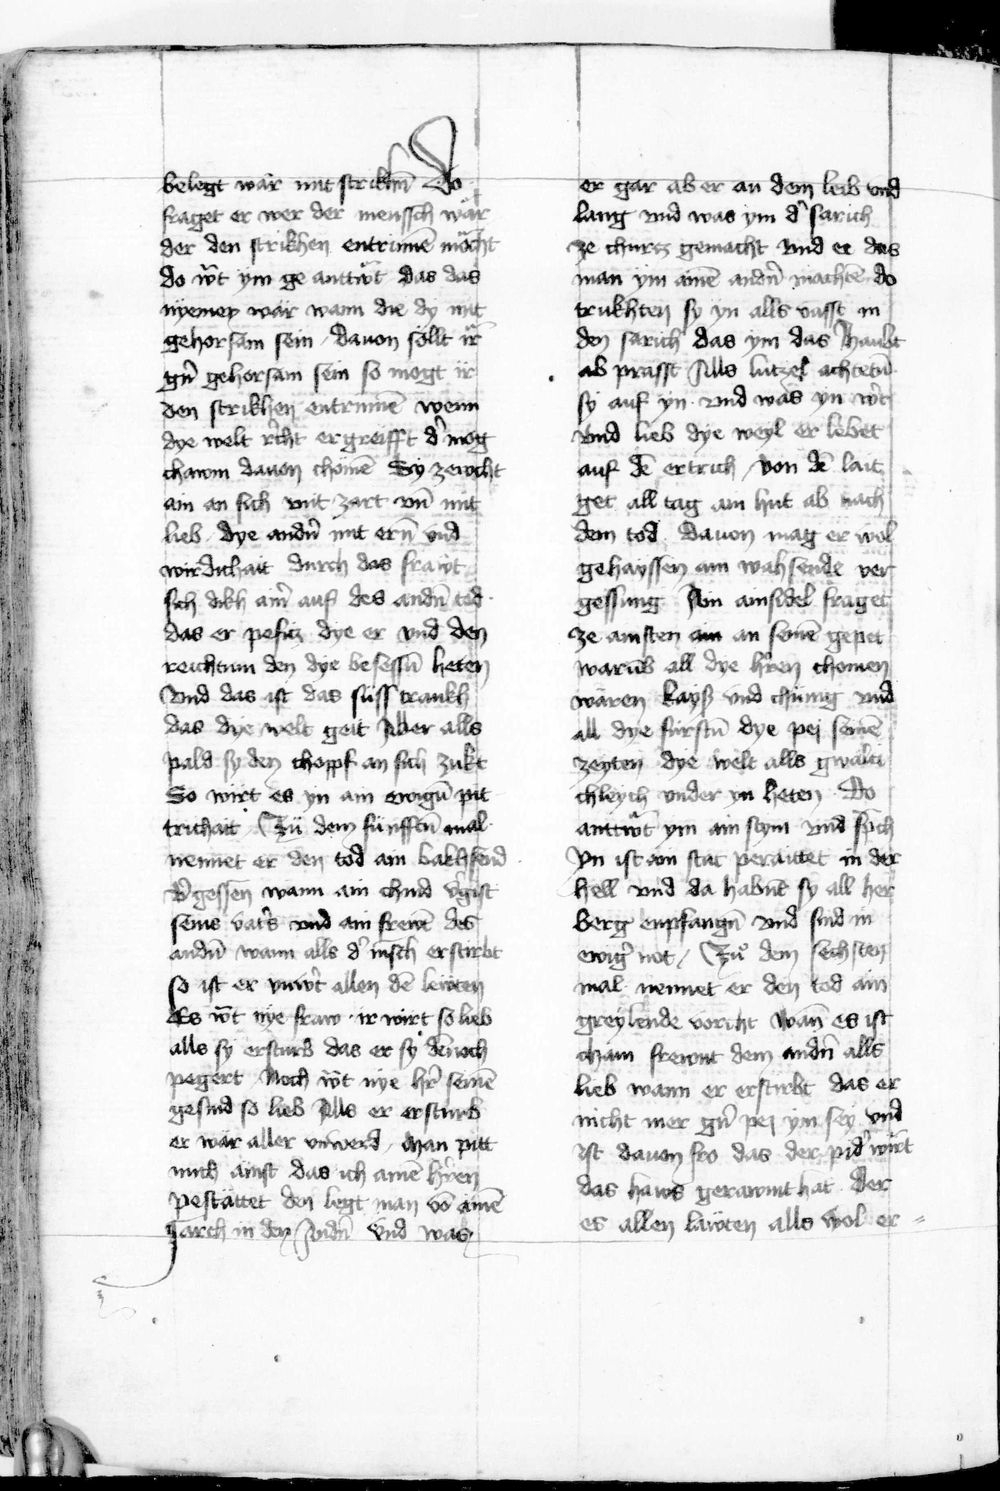 belegt wär mit strikhn̄ Do
fraget er wer der mensch wär
der den strikhen entrinnē möcht
do w̃t ym ge anttw̃t das das
nyemer wär wann die dy mit
gehorsam sein / dauon söllt ir̃
gn̄ gehorsam sein so mogt ir
den strikhen entrinnē wenn
dye welt r̃cht ergreifft d̃ mog
chawm dauon chomē Sy zewcht
ain an sich mit zart vn̄ mit
lieb / dye andn̄ mit ern̄ vnd
wirdichait durch das frawt
sich dikh ain̄ auf des andn̄ tod
das er pesicz dye er vnd den
reichtum den dye besessn̄ heten
vnd das ist das süss trankh
das dye welt geit Aber alls
pald sy den chopf an sich zukt
So wirt es yn ain ewign̄ pit
trichait Zü dem fünfftn̄ mal
nennet er den tod ain wahsend
v̄gessen wann ain chind v̄gist
seins vat̃s vnd ain frewt des
andn̄ wann alls d̃ m̄sch erstirbt
so ist er vnw̃t allen dē lewten
Es w̃t nye fraw · ir wirt so lieb
alls sy ersturb das er sy dēnoch
pegert Noch w̃t nye hr̃ seinē
gesind so lieb Alls er ersturb
er wär aller vnwerd / Man pitt
mich ainst das ich ainē hr̃en
pestättet den legt man vō ainē
sarch in den / Andn̄ vnd was
er gar ab er an dem leib vnd
lang vnd was ym d̃ sarich
ze churcz gemacht vnd ee das
man ym ainē andn̄ machē do
trukhten sy yn alls vasst in
den sarich das ym das haubt
ab prasst Alls lützel achtetn̄
sy auf yn · vnd was yn w̃t
vnd lieb dye weyl er lebet
auf dē ertrich / Von dē lait
get all tag ain hut ab nach
dem tod dauon mag er wol
gehayssen ain wahsende ver
gessung Ain ainsidel fraget
ze ainsten an seinē gepet
warūb all dye hr̃en chomen
wären kayß vnd chünig vnd
all dye fürstn̄ dye pej seinē
zeyten dye welt alls gwalti
chleych vnder yn heten · Do
anttw̃t ym ain stym vnd sp̃ch
Yn ist ain stat peraittet in der
hell vnd da habn̄t sy all her
berg enpfangn̄ vnd sind in
ewig̃ not / Zu dem sechsten
mal nennet er den tod ain
greylende vorcht wān es ist
chain frewnt dem andn̄ alls
lieb wann er erstirbt das er
nicht mer gn̄ pej ym sey vnd
ist dauon fro das der pid̃ wirt
das haws gerawmt hat der
es allen läwten alls wol er=